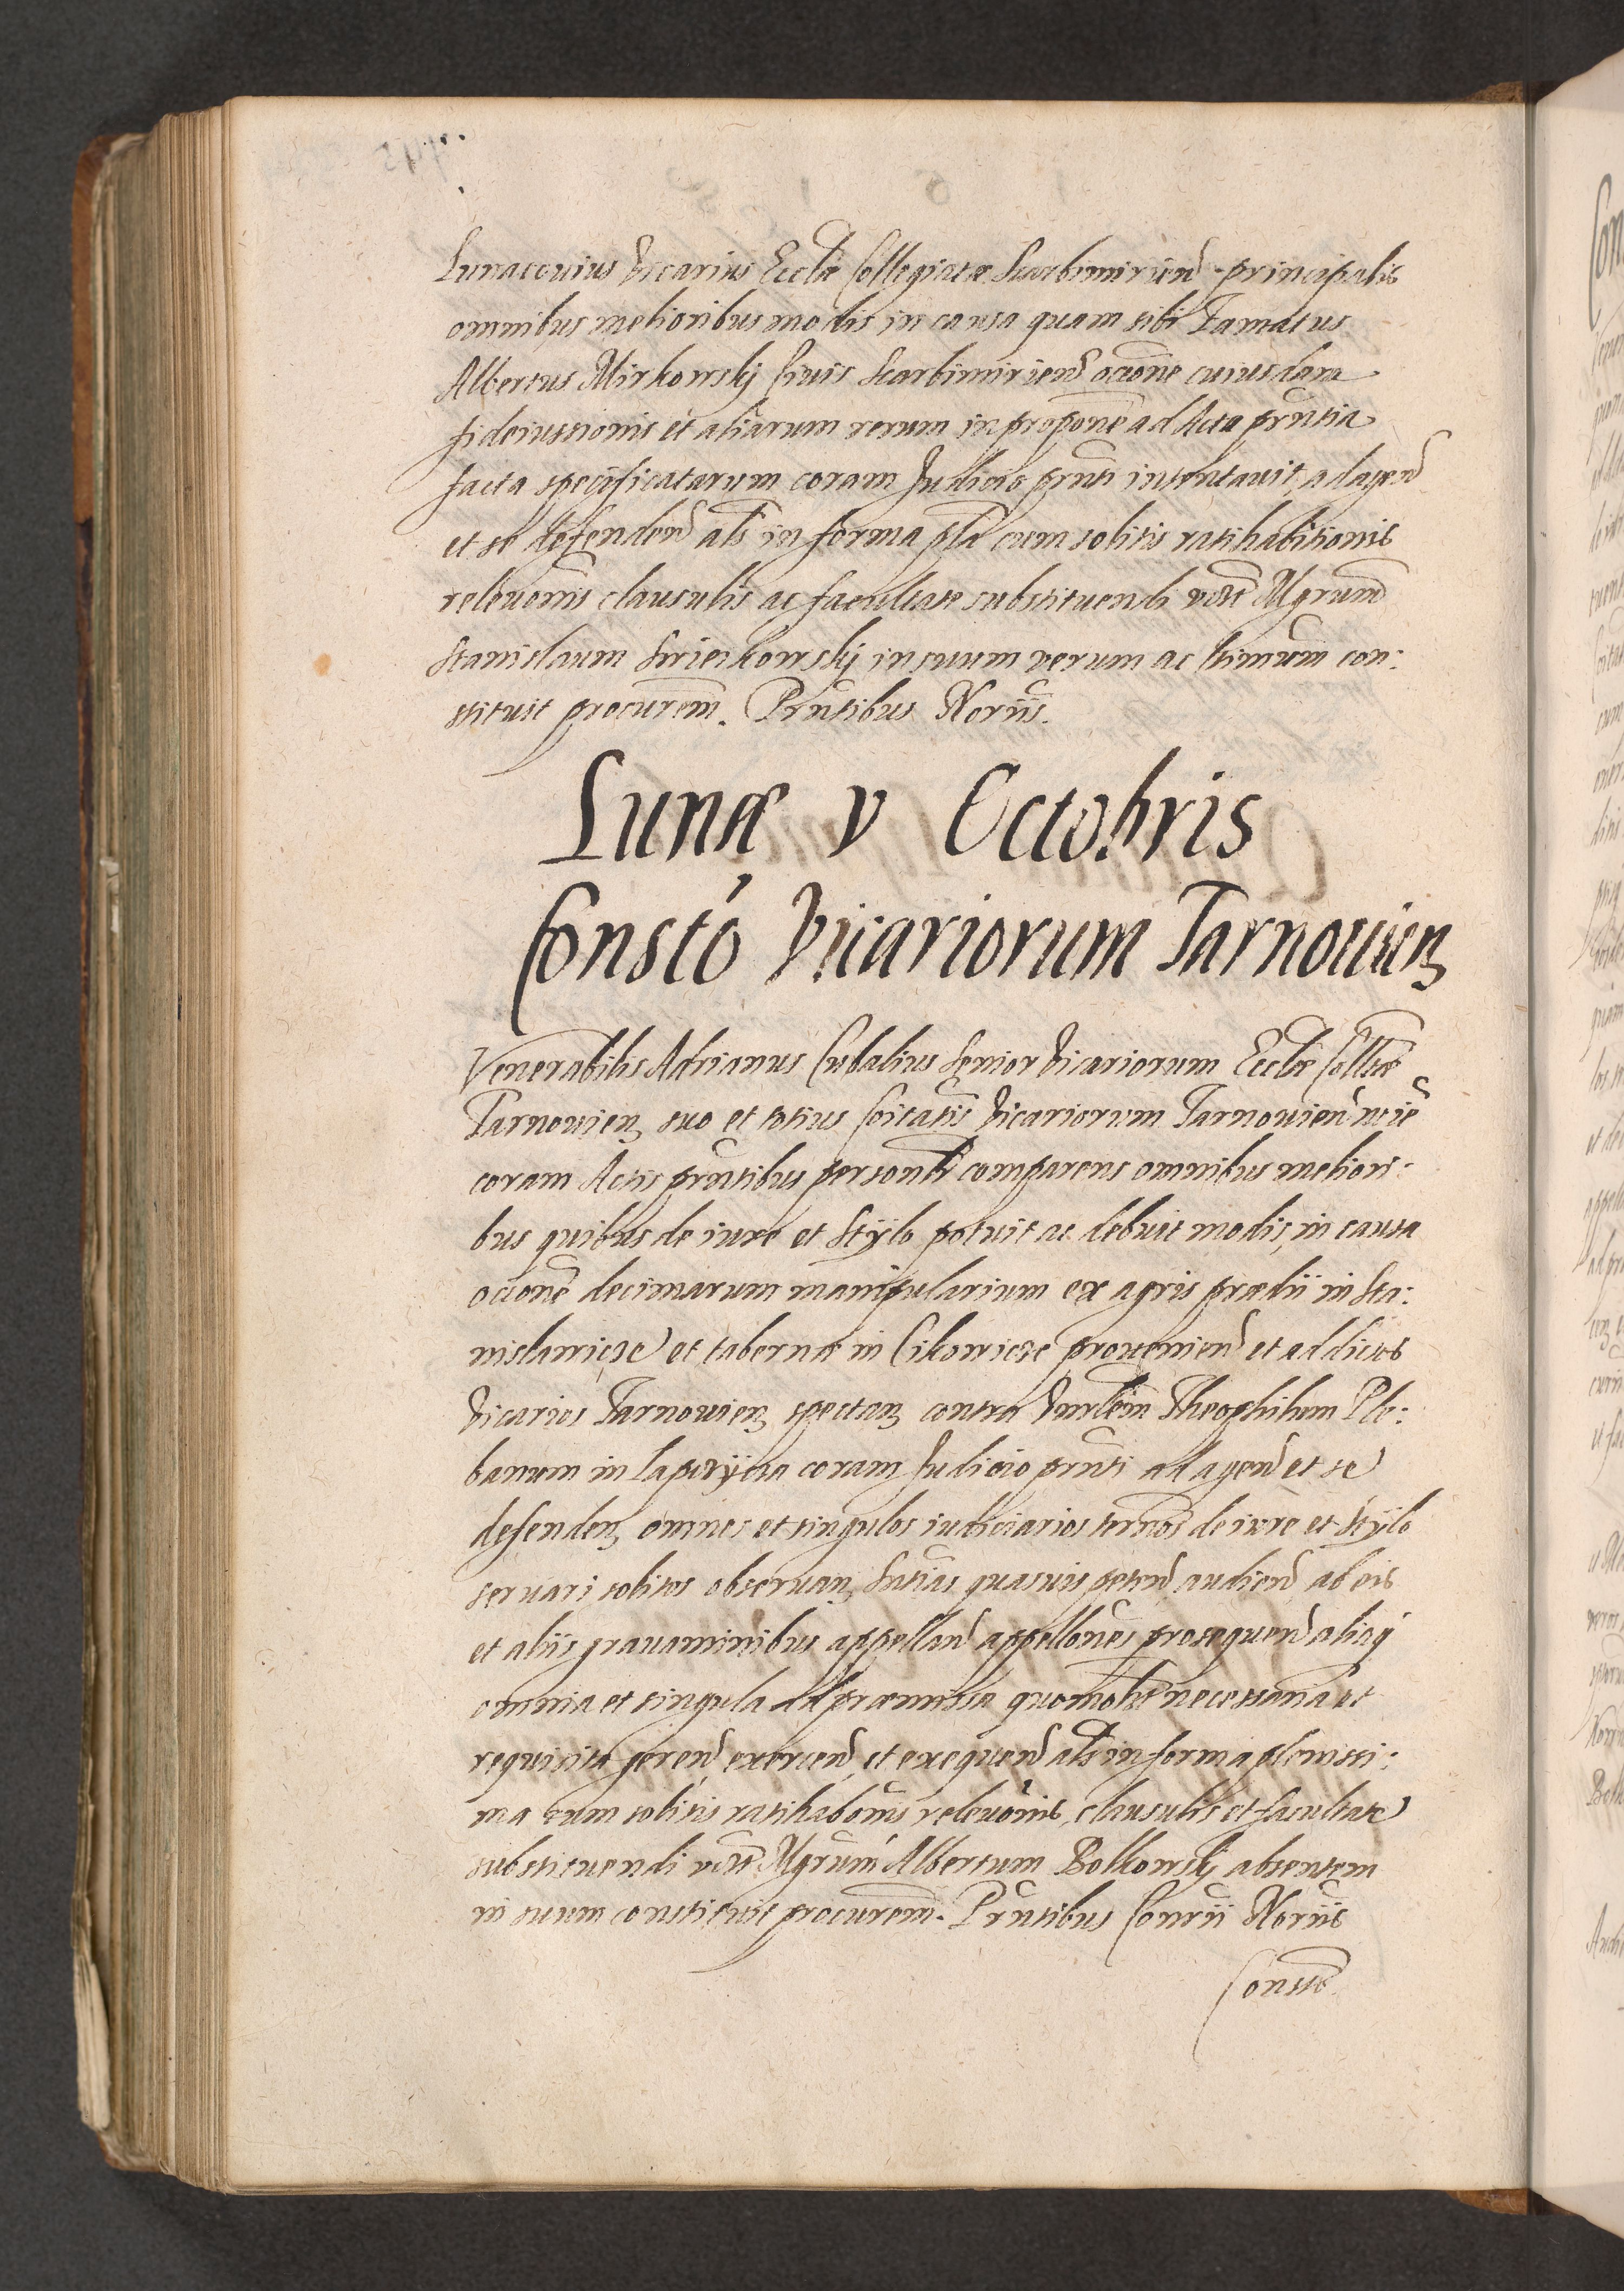 Lunacovius Vicarius Eccłæ Collegiatæ Scarbimirien̄ principalis
omnibus melioribus modis in causa quam sibi Famatus
Albertus Mirkowskj Civis Scarbimirien̄ occōne cuiusdam
fideiussionis et aliarum rerum in propōne ad Acta prn̄tia
facta specificatarum coram Judicio prn̄ti intentavit, ad agend̄
et se defenden̄ al̄s in forma pl̄a cum solitis ratihabitionis
relevōnis clausulis ac facultate substituendi vn̄e Mgrum̄
Stanislaum in suum verum ac ltimum̄ con:
stituit procurem̄. Prn̄tibus Norijs.
Lunæ v Octobris
Constó Vicariorum Tarnovien̄
Venerabilis Adrianus Senior Vicariorum Eccłæ Collt̄æ
Tarnovien̄ suo et totius Coitatis Vicariorum Tarnovien̄ noīe
coram Actis prn̄tibus personl̄r comparens omnibus meliori:
bus quibus de iure et stÿlo potuit ac debuit modis, in causa
occōne decimarum manipularium ex agris prædii in Sta:
nislawicze et tabernæ in Cikowicze provenien̄ et ad dictos
Vicarios Tarnovien̄ spectan̄ contra Theophilum Ple:
banum in Lapczÿcza coram Judicio prn̄ti ad agend̄ et se
defenden̄ omnes et singulos iudiciarios termōs de iure et stÿlo
servari solitos observan̄ Sn̄tias quasvis peten̄ audien̄ ab eis
et aliis gravaminibus appellan̄ appellōnes prosequen̄ aliaq̨
omnia et singula ad præmissa quomolt̄ necessaria et
requisita geren̄ exercen̄ et exequen̄ al̄s in forma plenissi:
ma cum solitis ratihabōnis relevōnis, clausulis et facultate
substituendi vn̄e Mgrum̄ Albertum Bolkowskj absentem
in suum constituit procurem̄. Prn̄tibus Conrij Norijs
Constō